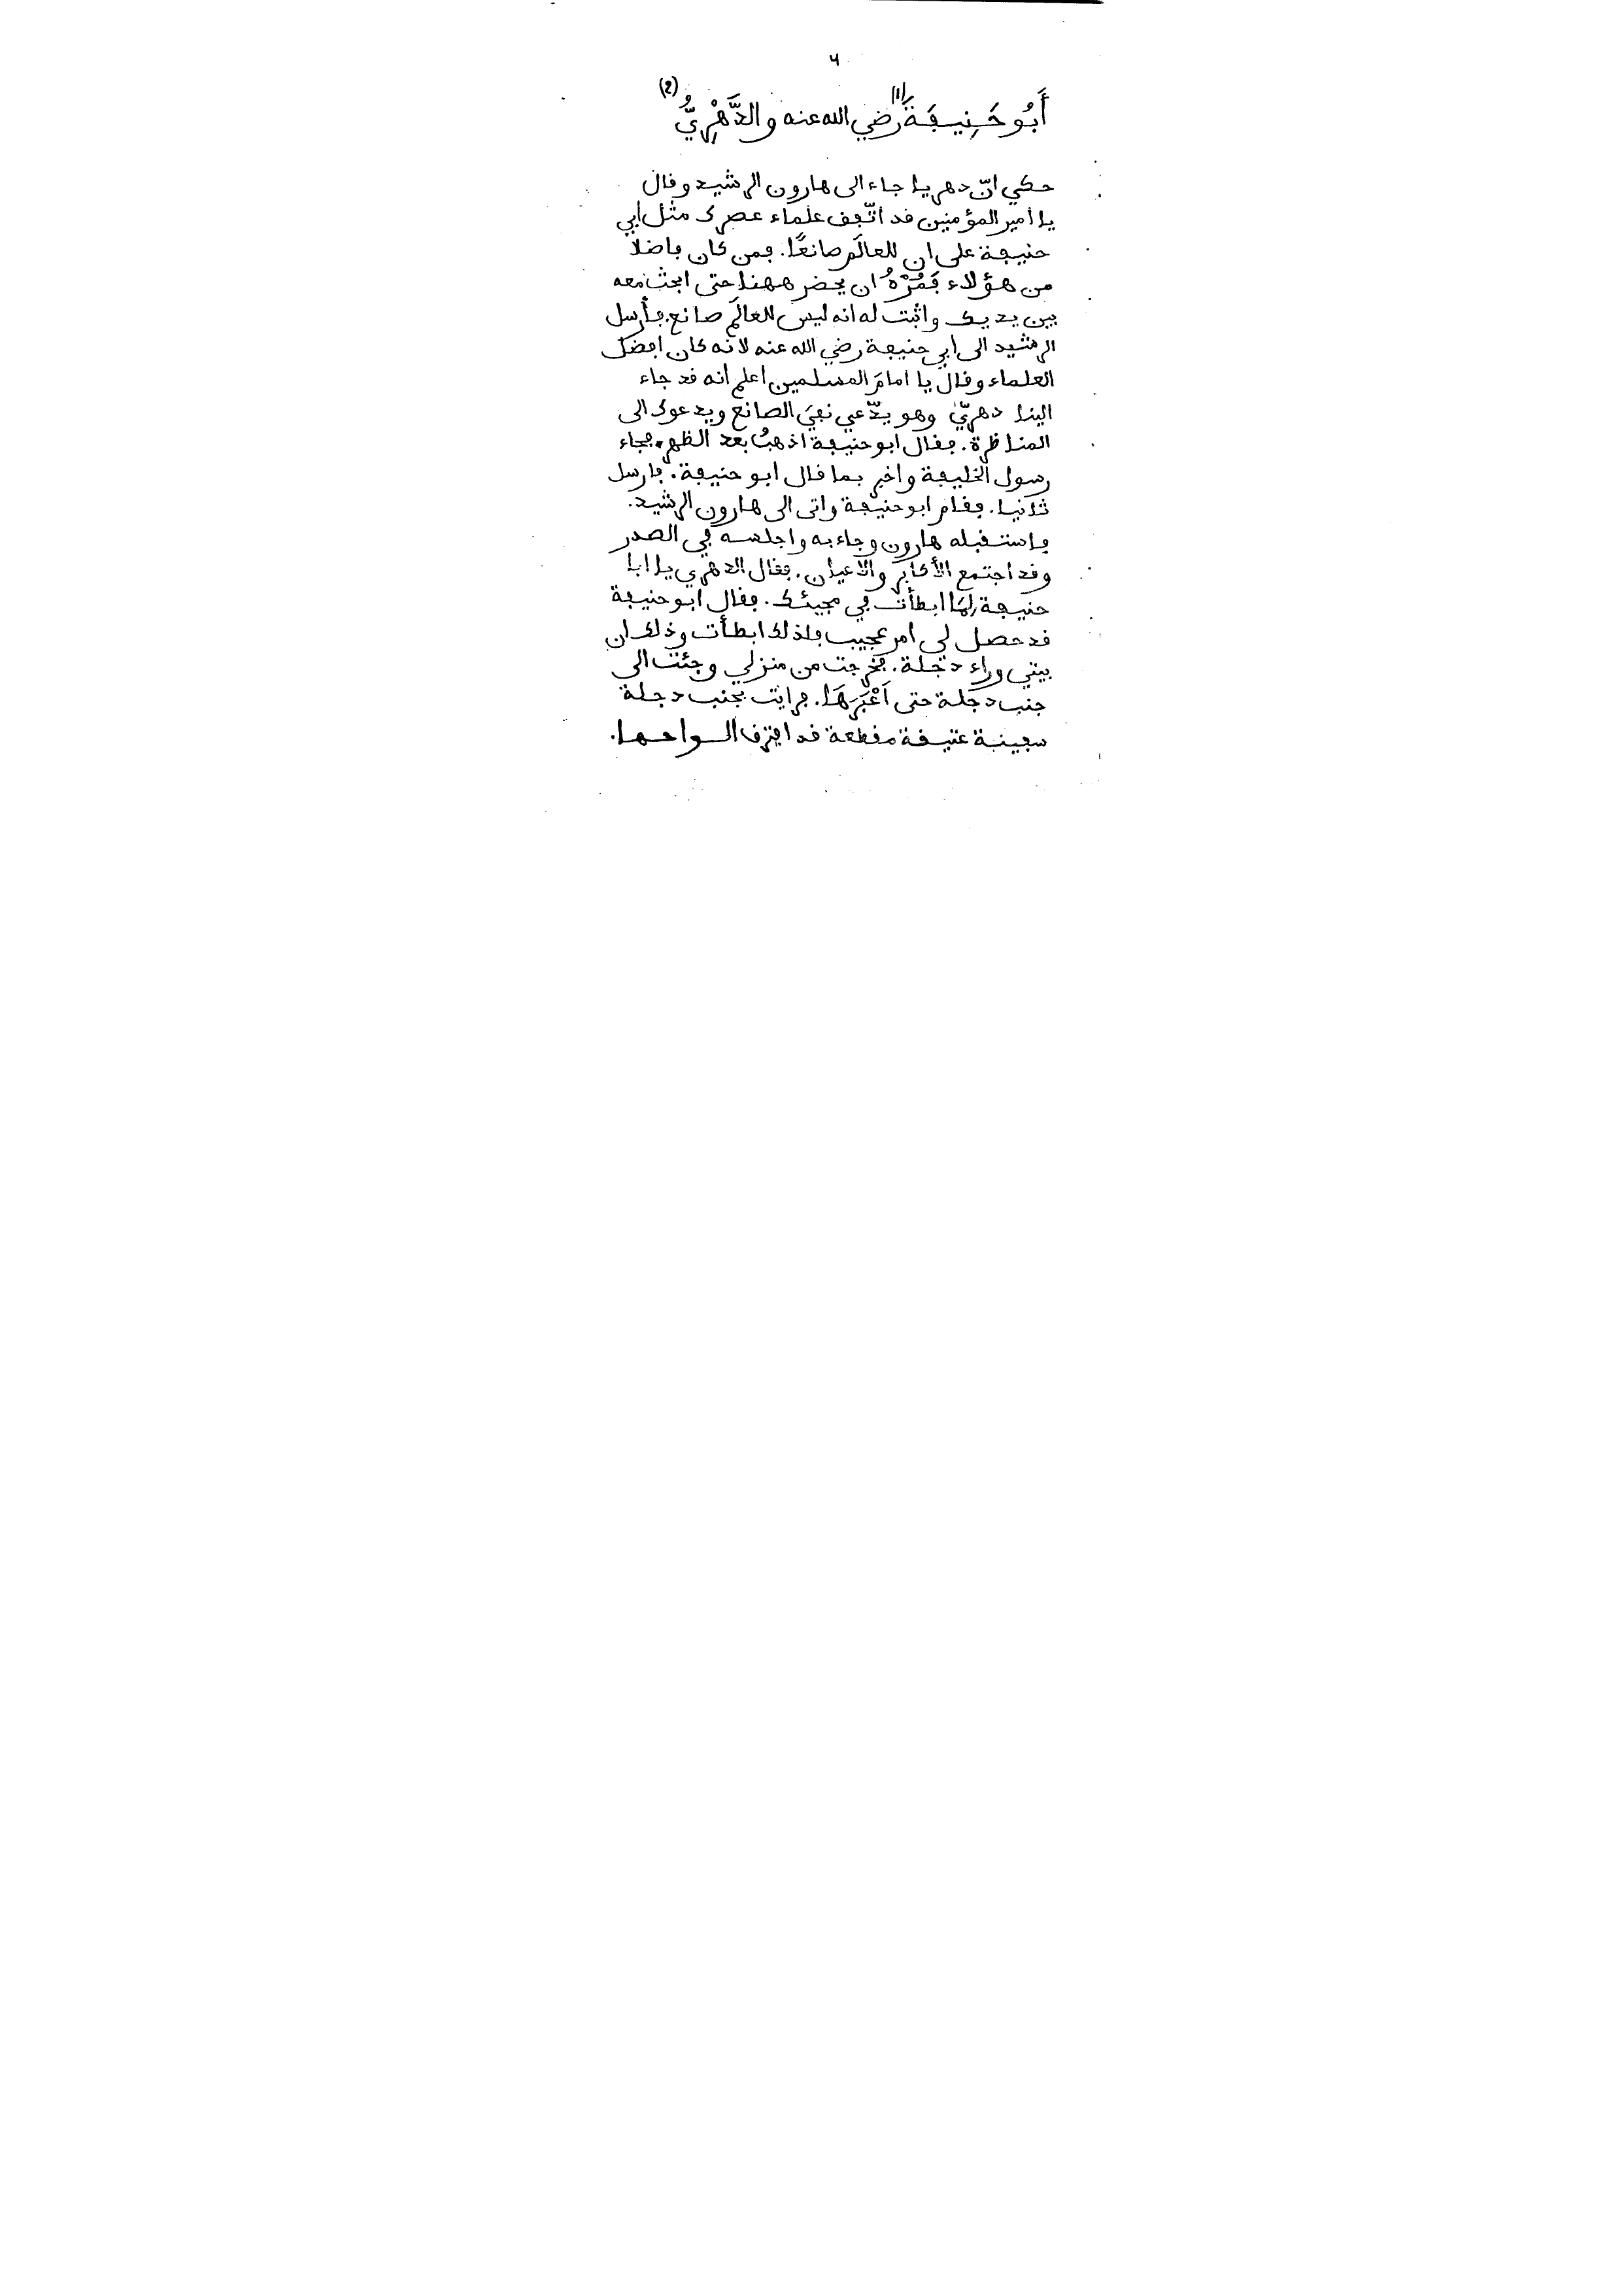 أَبُو حَنِيفَة (1) رضي الله عنه والدَّهْرِيُّ (2)
حكي انّ دهريا جاء الى هارون الرشيد وقال
يا أمير المؤمنين قد اتّفق علماء عصرك مثل أبي
حنيفة على ان للعالَم صانعًا. فمن كان فاضلا
من هؤلاء فَمُرْهُ ان يحضر ههنا حتى ابحث معه
بين يديك واثبت له انه ليس للعالَم صانع. فأرسل
الرشيد الى ابي حنيفة رضي الله عنه لانه كان افضل
العلماء وقال يا امامَ المسلمين اعلم أنه قد جاء
الينا دهريّ وهو يدّعي نفيَ الصانع ويدعوك الى
المناظرة. فقال ابو حنيفة اذهبُ بعد الظهر. فجاء
رسول الخليفة واخبر بما قال ابو حنيفة. فارسل
ثانيا. فقام ابو حنيفة واتى الى هارون الرشيد.
فاستقبله هارون وجاء به واجلسه في الصدر
وقد اجتمع الأكابر والاعيان. فقال الدهري يا ابا
حنيفة لِمَا ابطأت في مجيئك. فقال ابو حنيفة
قد حصل لي امر عجيب فلذلك ابطأت وذلك ان
بيتي وراء دجلة. فخرجت من منزلي وجئت الى
جنب دجلة حتى اَعْبَرَهَا. فرايت بجنب دجلة
سفينة عتيقة مقطعة قد افترق الواحها.